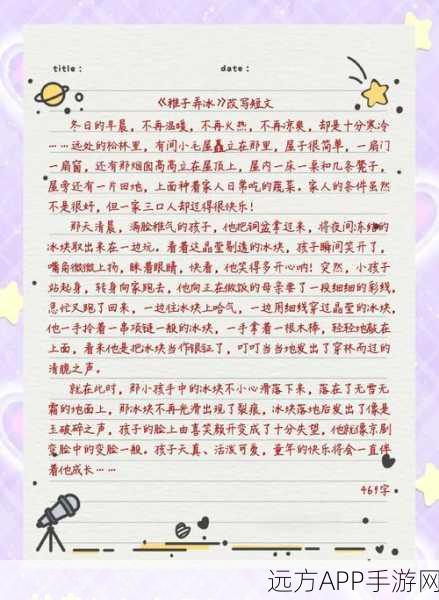 title：
date：
《稚子弄冰》改写短文
冬日的早晨，不再温暖，不再火热，不再凉爽，却是十分寒冷
……远处的松林里，有间小毛屋矗立在那里，屋子很简单，一扇门
一扇窗，还有那烟囱高高立在屋顶上，屋内一床一桌和几条凳子，
屋旁还有一片田地，上面种着家人日常吃的蔬菜。家人的条件虽然
不是很好，但一家三口人却过得很快乐！
那天清晨，满脸稚气的孩子，他把铜盆拿过来，将夜间冻结的
冰块取出来在一边玩。看着这晶莹剔透的冰块，孩子瞬间笑开了，
嘴角微微上扬，眯着眼睛，快看，他笑得多开心呐！突然，小孩子
站起身，转身向家跑去，他向正在做饭的母亲要了一根细细的彩线，
急忙又跑了回来，一边往冰块上哈气，一边用细线穿过晶莹的冰块，
他一手拎着一串项链一般的冰块，一手拿着一根木棒，轻轻地敲在
上面，看来他是把冰块当作银钲了，叮叮当当地发出了穿林而过的
清脆之声。
就在此时，那小孩手中的冰块不小心滑落下来，落在了无雪无
霜的地面上，那冰块不再光滑出现了裂痕，冰块落地后发出了像是
玉破碎之声，孩子的脸上由喜笑颜开变成了十分失望，他就像京剧
变脸中的变脸一般。孩子天真、活泼可爱，童年的快乐将会一直伴
着他成长……
469字
远方APP手游网